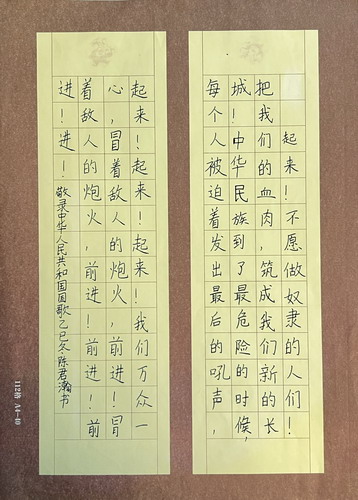 起来！不愿做奴隶的人们！
把我们的血肉，筑成我们新的长
城！中华民族到了最危险的时候，
每个人被迫着发出最后的吼声，
起来！起来！起来！我们万众一
心，冒着敌人的炮火，前进！冒
着敌人的炮火，前进！前进！前
进！进！敬录中华人民共和国国歌乙巳冬陈君瀚书
112格